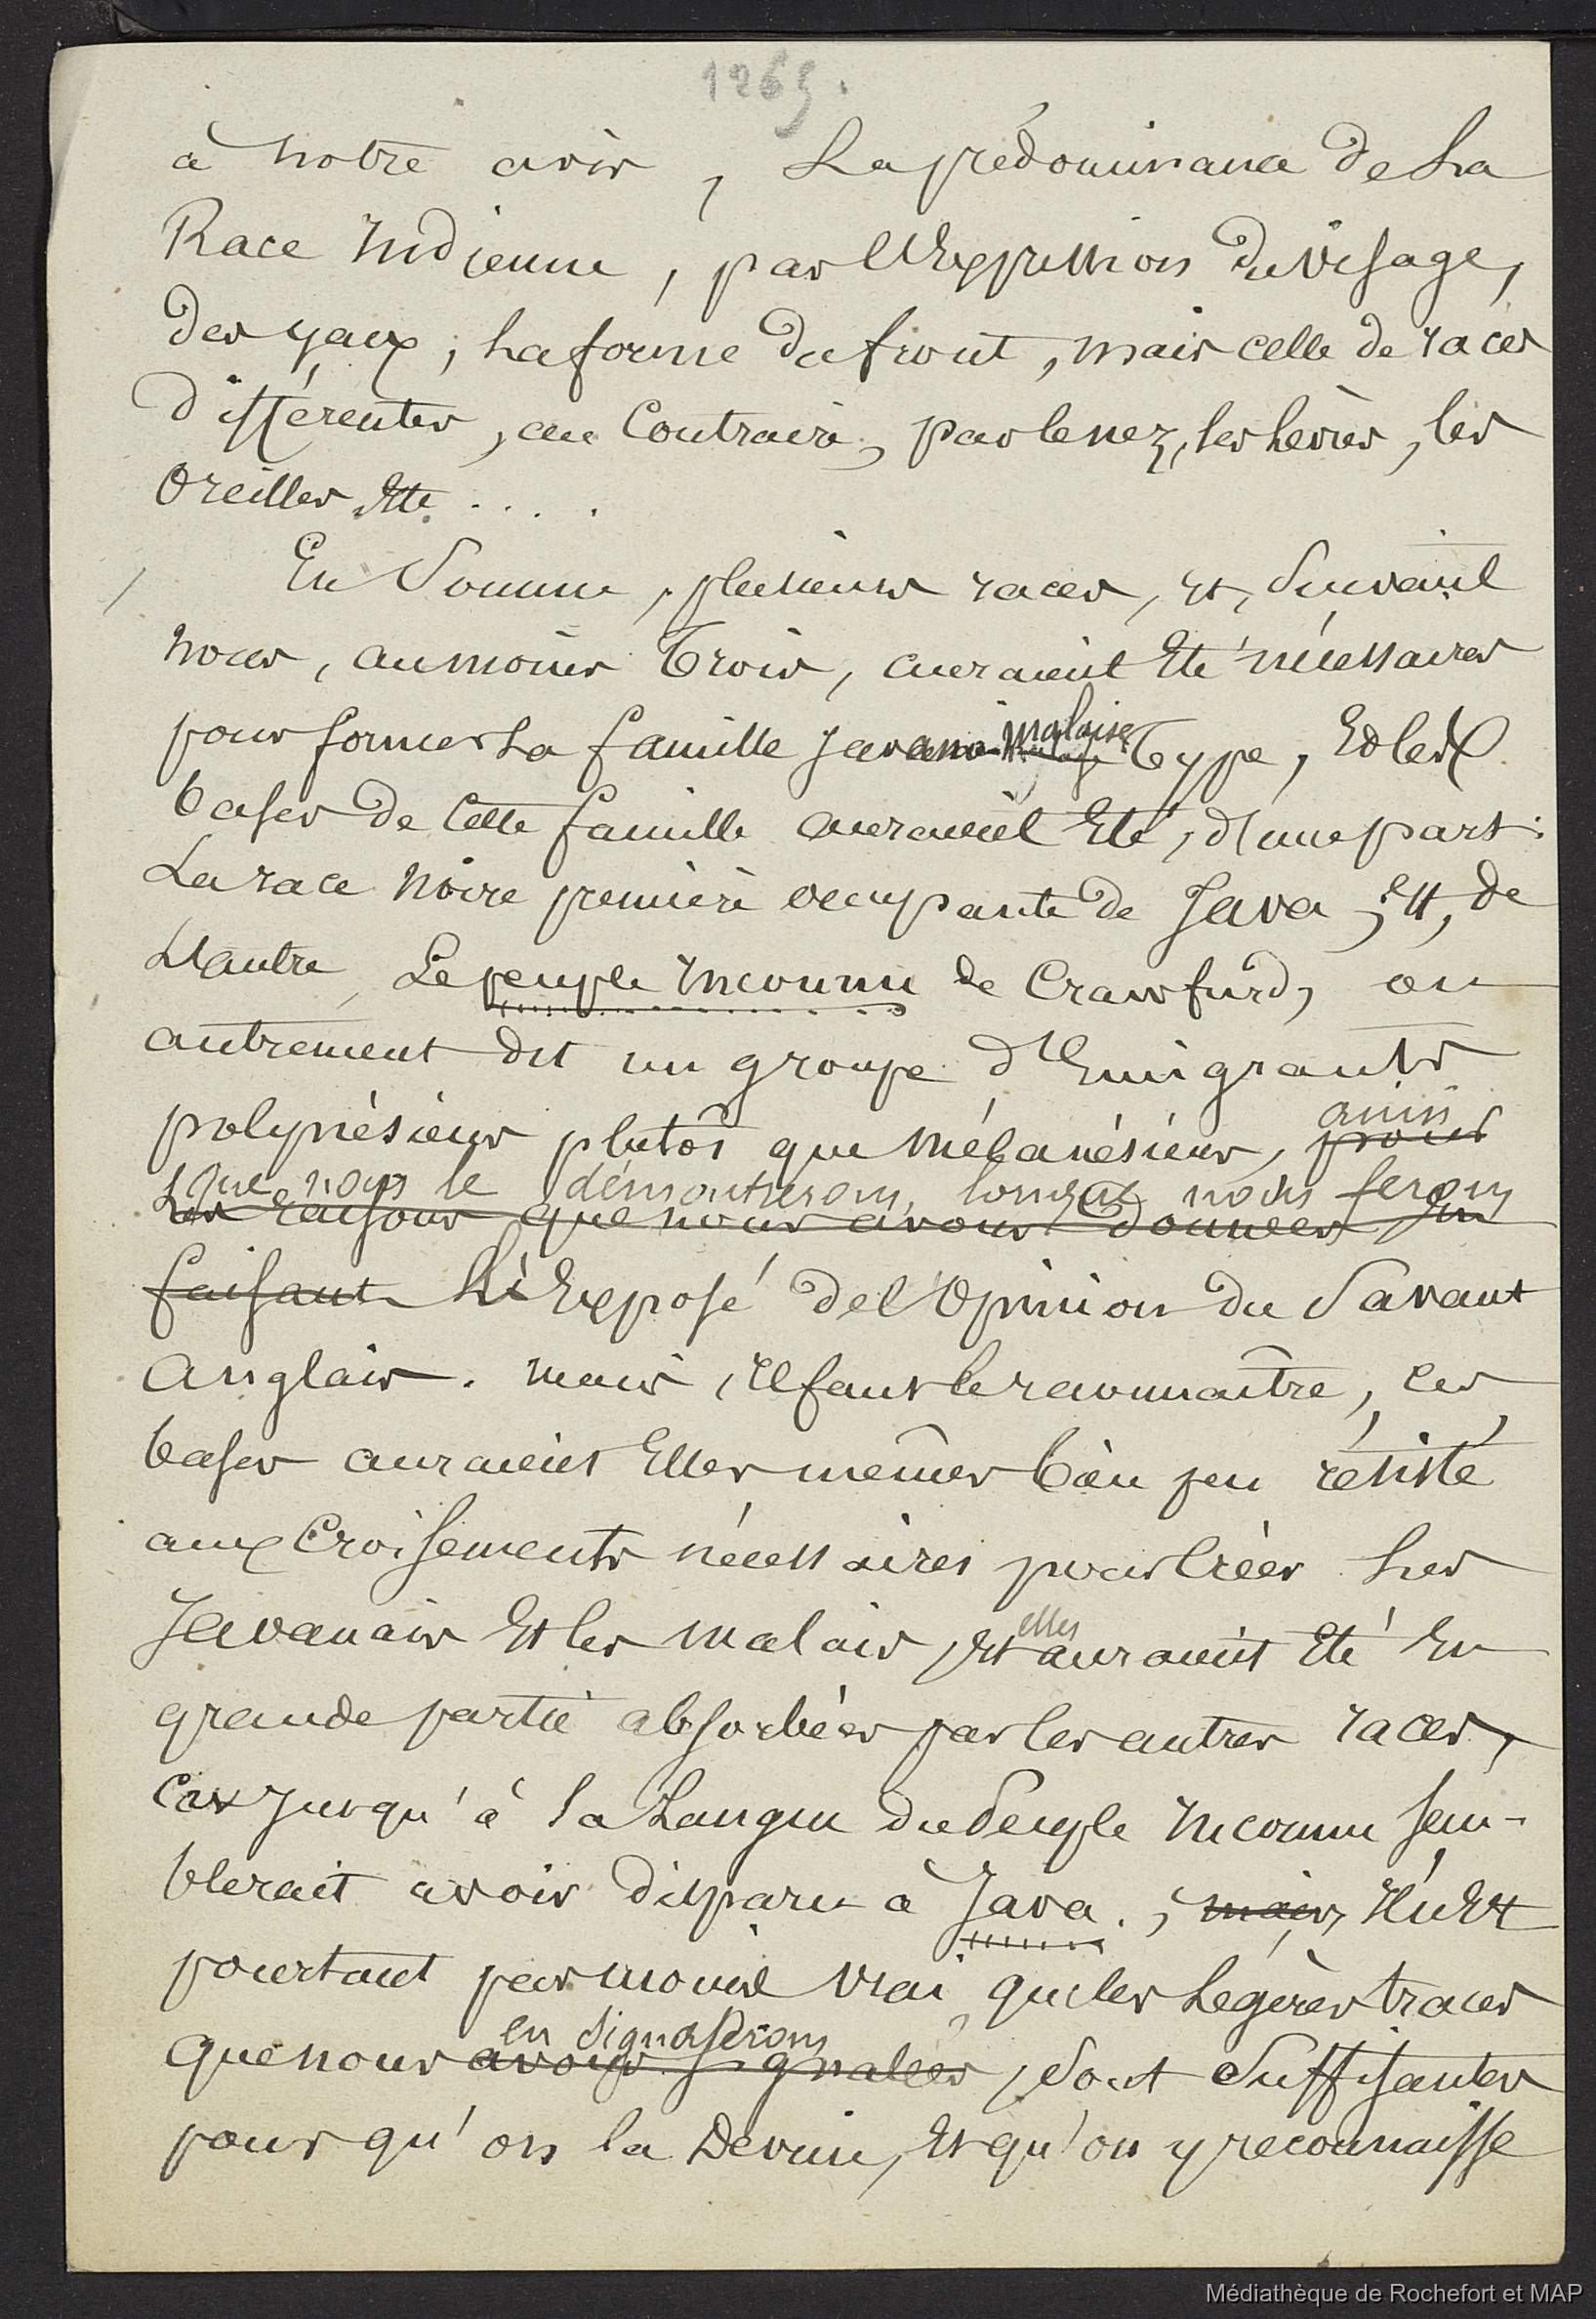 1265.
à notre avis, La prédominance de La
Race Indienne, par l'Expression du visage,
des yeux, La forme du front, mais celle de races
différentes, au Contraire, par le nez, les Lèvres, les
Oreilles Etc. . . . .
En Somme, plusieurs races, et, Suivant
nous, au moins Trois, auraient Eté nécessaires
pour former La famille Javano-malaise Type, Et les
bases de Cette famille auraient Eté, d'une part:
La race Noire première occupante de Java; Et, de
L'autre, Le peuple inconnu de Crawfurd, ou
autrement dit un groupe d'Emigrants
polynésiens plutôt que Mélanésiens, ainsi
pour
que nous le démontrerons, lorsque nous ferons
Les raisons que nous avons données En
faisant L'Exposé de l'Opinion du Savant
Anglais. Mais, Il faut le reconnaître, ces
bases auraient Elles mêmes bien peu résisté
aux Croisements nécessaires pour Créer Les
Javanais Et les Malais, Et elles auraient Eté En
grande partie absorbées par les autres races,
Car Jusqu'à la Langue du Peuple Inconnu sem-
blerait avoir disparu à Java. ; mais, Il n'Est
pourtant pas moins vrai que les Légères traces
en signalerons
que nous avons signalées, Sont Suffisantes
pour qu'on la Devine, Et qu'on y reconnaisse
Médiathèque de Rochefort et MAP